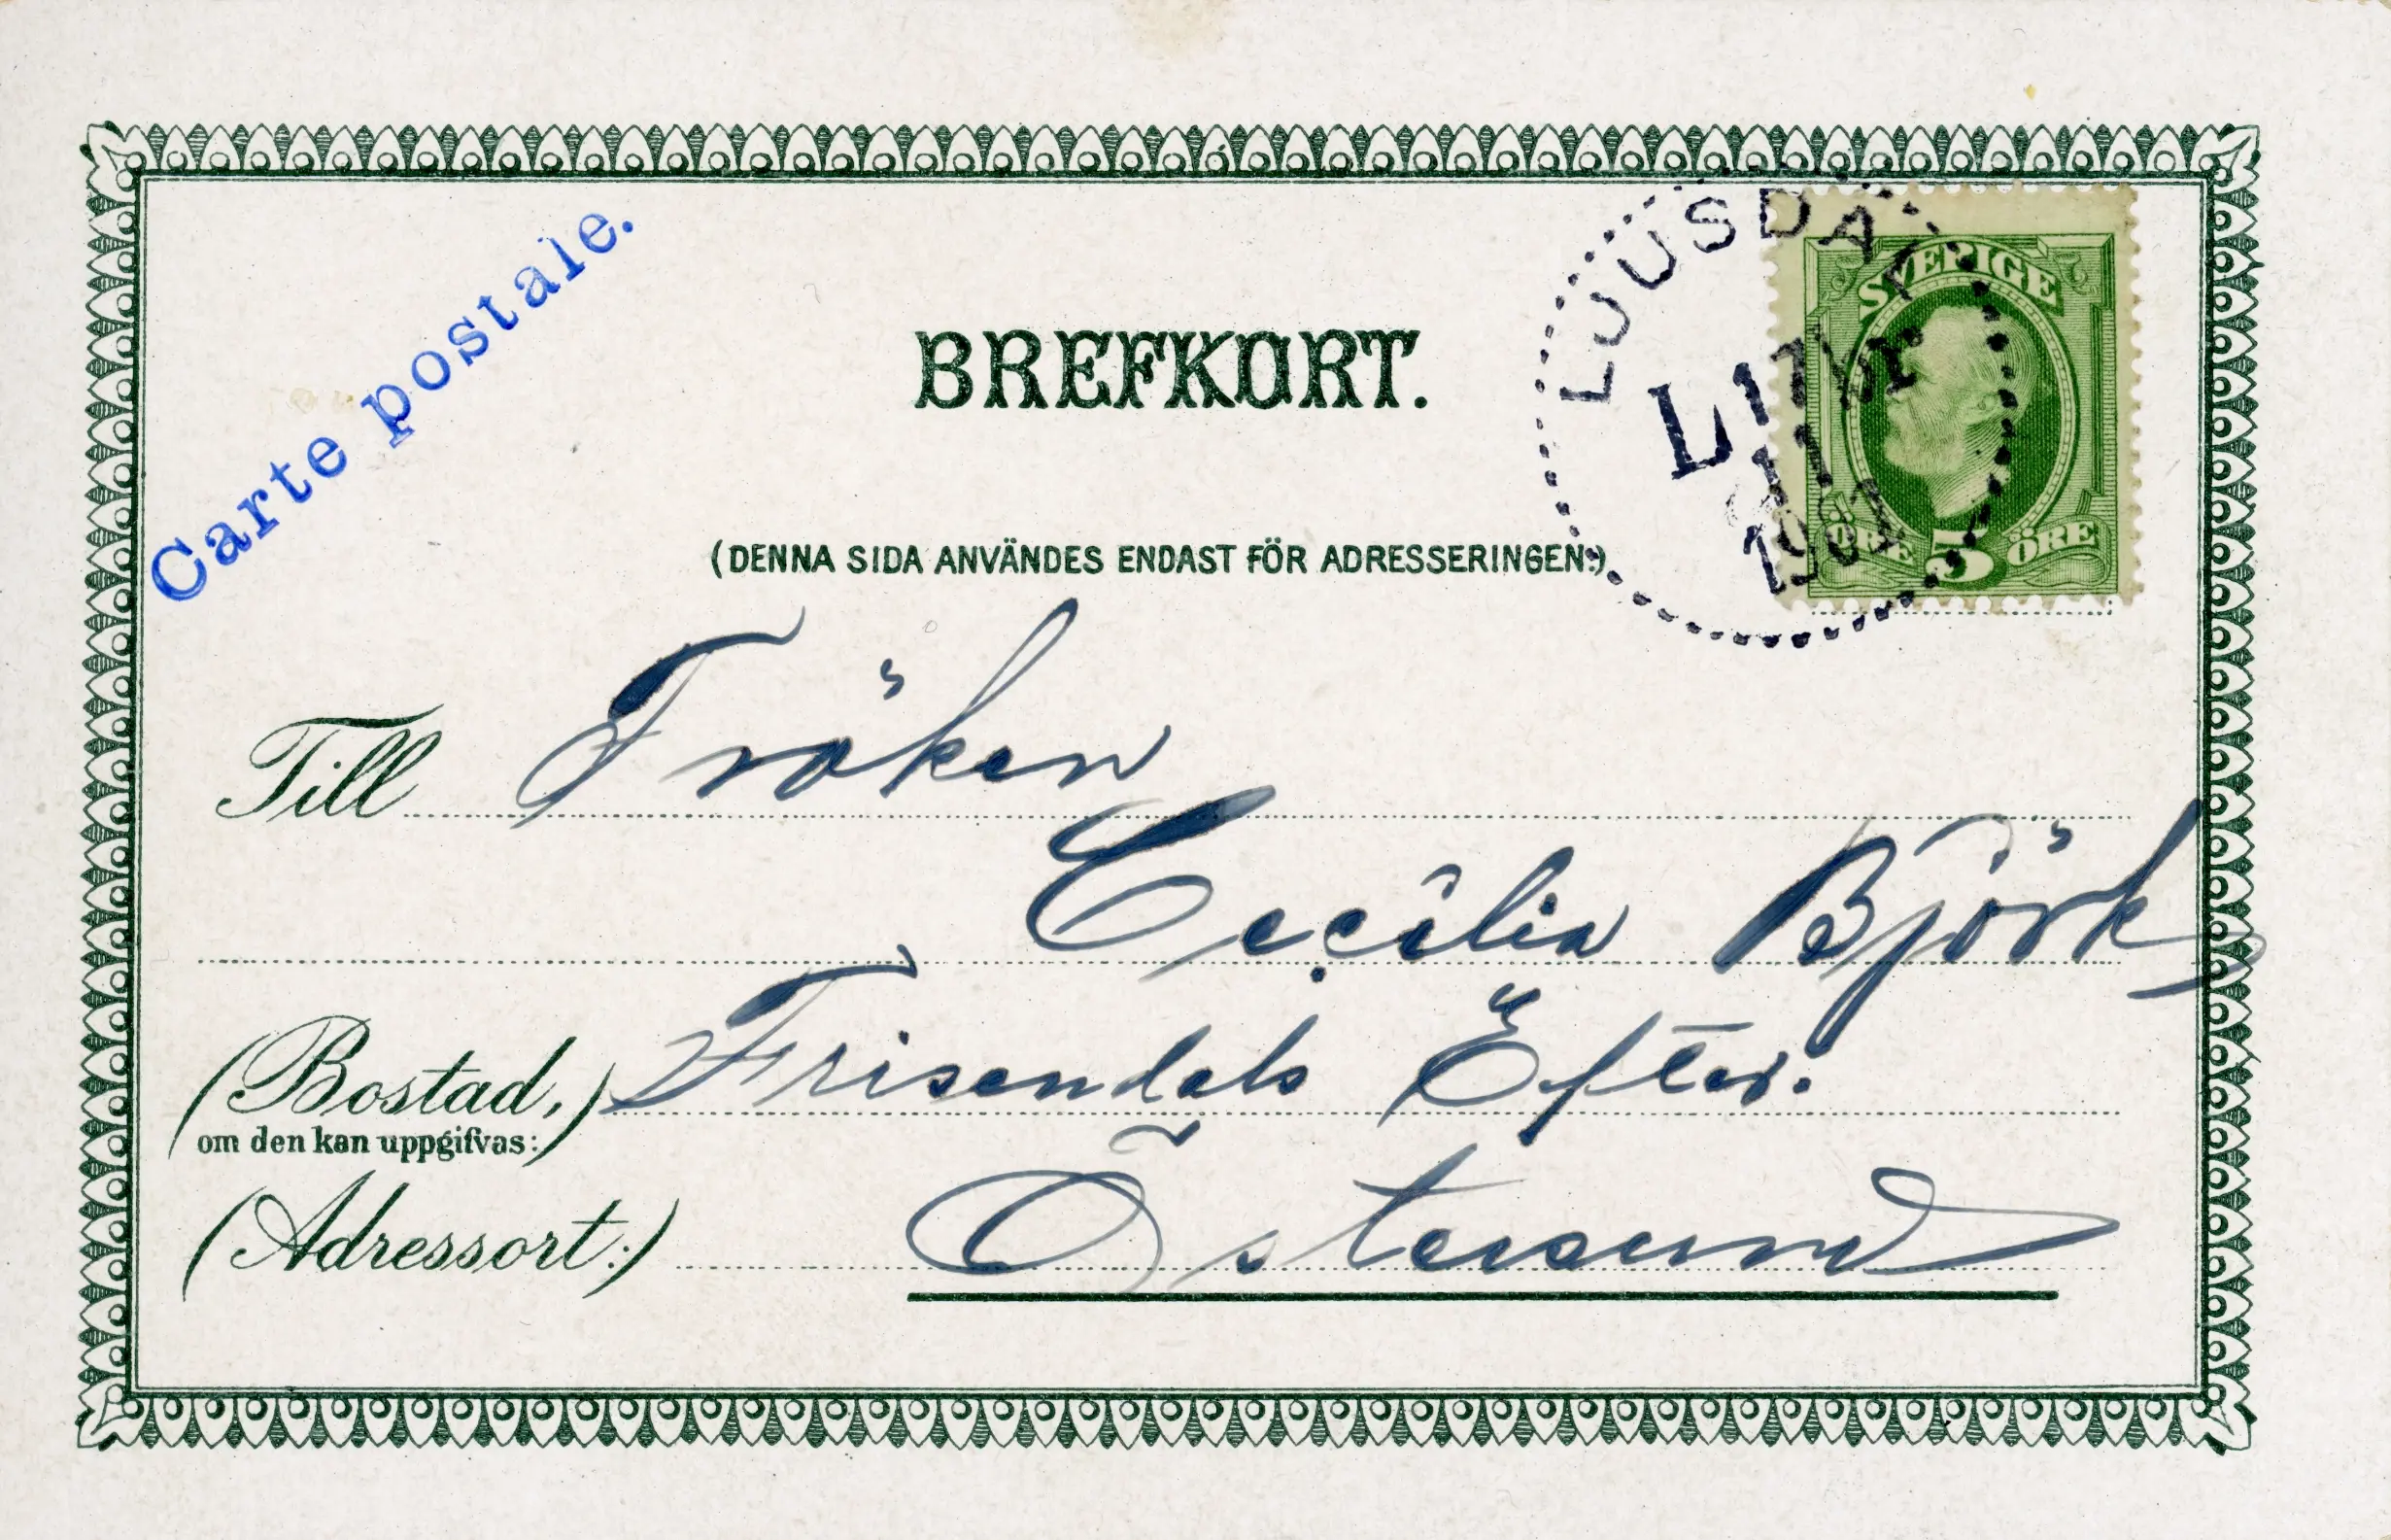 Carte postale.
BREFKORT.
(DENNA SIDA ANVÄNDES ENDAST FÖR ADRESSERINGEN.)
LJUSDAL
SVERIGE
5
ÖRE
ÖRE
Till Fröken
Cecilia Björk
(Bostad,) Frisendals Efter.
om den kan uppgifvas:
(Adressort:) Östersund